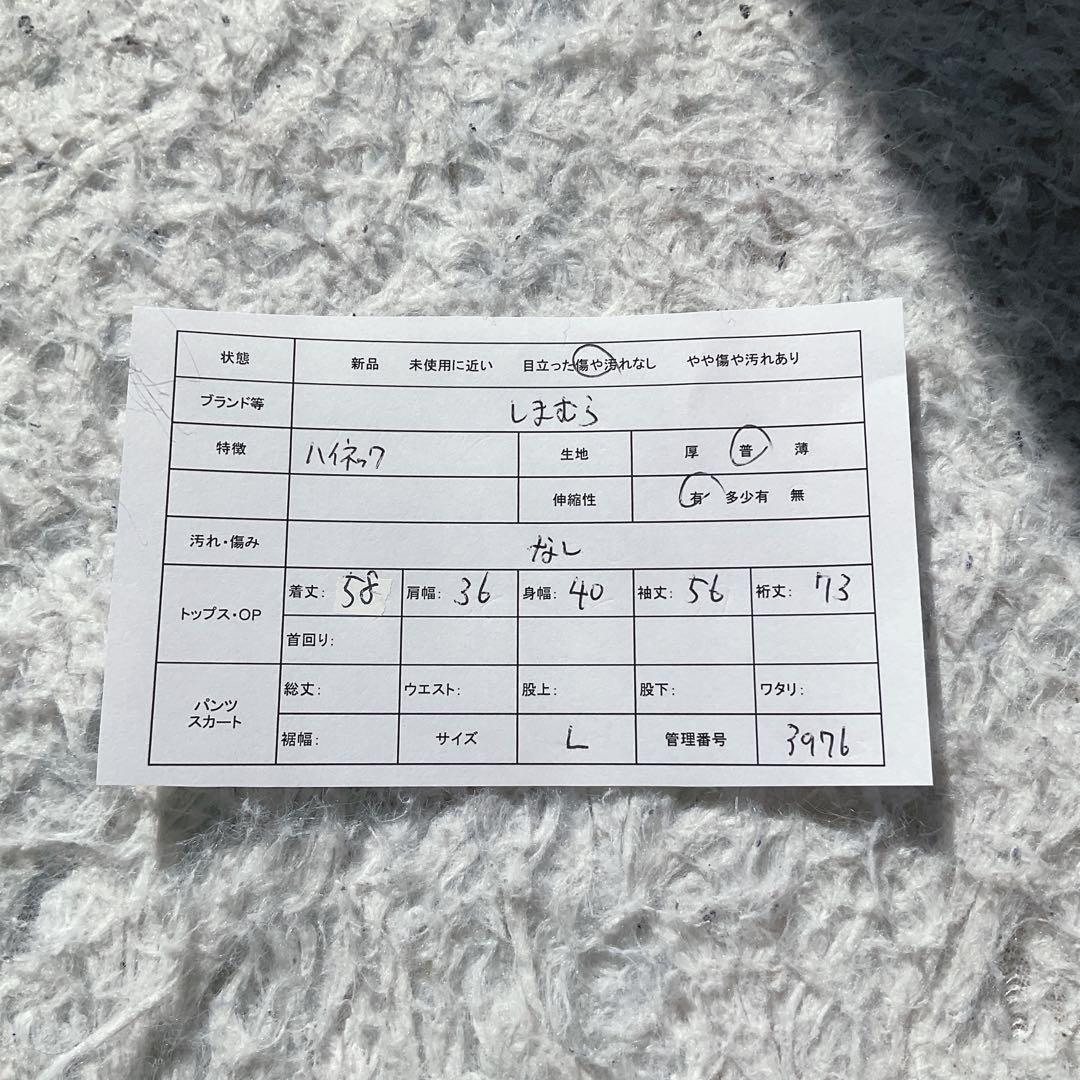 状態 新品 未使用に近い 目立った傷や汚れなし やや傷や汚れあり
ブランド等 しまむら
特徴 ハイネック 生地 厚 普 薄
伸縮性 有 多少有 無
汚れ・傷み なし
トップス・OP 着丈: 58 肩幅: 36 身幅: 40 袖丈: 56 裄丈: 73
首回り:
パンツ スカート 総丈: ウエスト: 股上: 股下: ワタリ:
裾幅: サイズ L 管理番号 3976